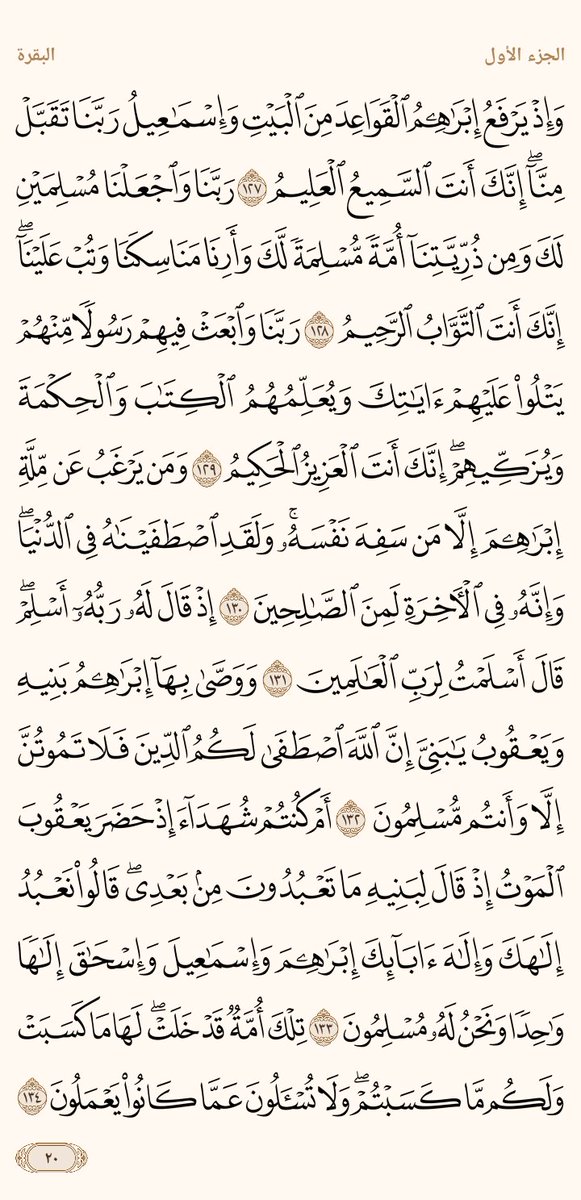 الجزء الأول
البقرة
وَإِذۡ يَرۡفَعُ إِبۡرَٰهِـۧمُ ٱلۡقَوَاعِدَ مِنَ ٱلۡبَيۡتِ وَإِسۡمَٰعِيلُ رَبَّنَا تَقَبَّلۡ
مِنَّآۖ إِنَّكَ أَنتَ ٱلسَّمِيعُ ٱلۡعَلِيمُ ١٢٧ رَبَّنَا وَٱجۡعَلۡنَا مُسۡلِمَيۡنِ
لَكَ وَمِن ذُرِّيَّتِنَآ أُمَّةٗ مُّسۡلِمَةٗ لَّكَ وَأَرِنَا مَنَاسِكَنَا وَتُبۡ عَلَيۡنَآۖ
إِنَّكَ أَنتَ ٱلتَّوَّابُ ٱلرَّحِيمُ ١٢٨ رَبَّنَا وَٱبۡعَثۡ فِيهِمۡ رَسُولٗا مِّنۡهُمۡ
يَتۡلُواْ عَلَيۡهِمۡ ءَايَٰتِكَ وَيُعَلِّمُهُمُ ٱلۡكِتَٰبَ وَٱلۡحِكۡمَةَ
وَيُزَكِّيهِمۡۖ إِنَّكَ أَنتَ ٱلۡعَزِيزُ ٱلۡحَكِيمُ ١٢٩ وَمَن يَرۡغَبُ عَن مِّلَّةِ
إِبۡرَٰهِـۧمَ إِلَّا مَن سَفِهَ نَفۡسَهُۥۚ وَلَقَدِ ٱصۡطَفَيۡنَٰهُ فِي ٱلدُّنۡيَاۖ
وَإِنَّهُۥ فِي ٱلۡأٓخِرَةِ لَمِنَ ٱلصَّٰلِحِينَ ١٣٠ إِذۡ قَالَ لَهُۥ رَبُّهُۥٓ أَسۡلِمۡۖ
قَالَ أَسۡلَمۡتُ لِرَبِّ ٱلۡعَٰلَمِينَ ١٣١ وَوَصَّىٰ بِهَآ إِبۡرَٰهِـۧمُ بَنِيهِ
وَيَعۡقُوبُ يَٰبَنِيَّ إِنَّ ٱللَّهَ ٱصۡطَفَىٰ لَكُمُ ٱلدِّينَ فَلَا تَمُوتُنَّ
إِلَّا وَأَنتُم مُّسۡلِمُونَ ١٣٢ أَمۡ كُنتُمۡ شُهَدَآءَ إِذۡ حَضَرَ يَعۡقُوبَ
ٱلۡمَوۡتُ إِذۡ قَالَ لِبَنِيهِ مَا تَعۡبُدُونَ مِنۢ بَعۡدِيۖ قَالُواْ نَعۡبُدُ
إِلَٰهَكَ وَإِلَٰهَ ءَابَآئِكَ إِبۡرَٰهِـۧمَ وَإِسۡمَٰعِيلَ وَإِسۡحَٰقَ إِلَٰهٗا
وَٰحِدٗا وَنَحۡنُ لَهُۥ مُسۡلِمُونَ ١٣٣ تِلۡكَ أُمَّةٞ قَدۡ خَلَتۡۖ لَهَا مَا كَسَبَتۡ
وَلَكُم مَّا كَسَبۡتُمۡۖ وَلَا تُسۡـَٔلُونَ عَمَّا كَانُواْ يَعۡمَلُونَ ١٣٤
٢٠